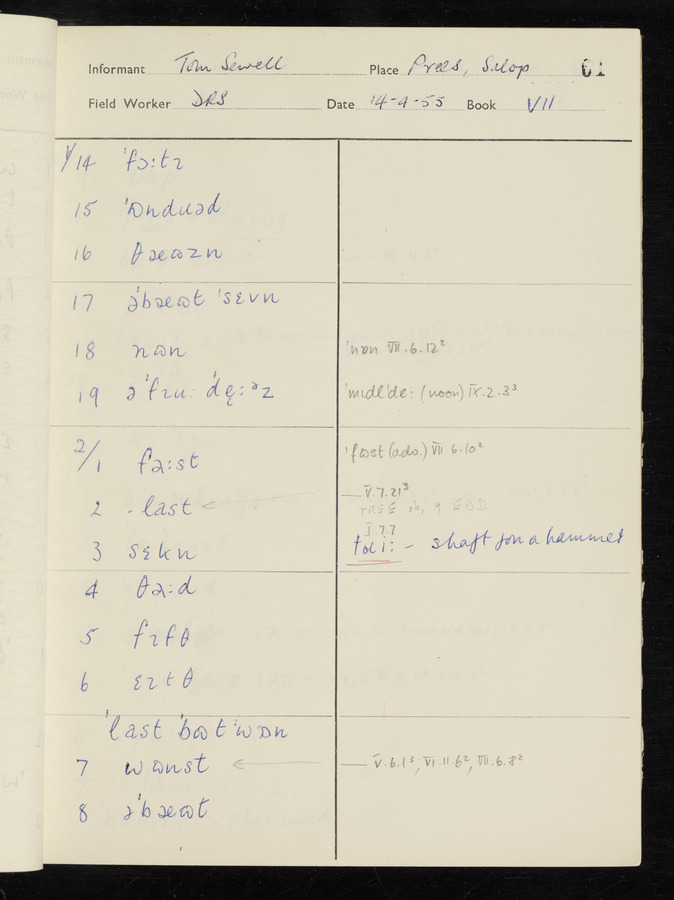 Informant Tom Sewell Place Prees, Salop 61
Field Worker DRS Date 14-4-55 Book VII
1/14 ˈfɔːtɪ
15 ˈɷndɹəd
16 θaeɷzn
17 əˈbaeɷt ˈsɛvn
18 nɷn ˈnɒn VII.6.12²
19 ˈmɪdl'deː (noon) IX.2.3³
2/1 fəːst ˈfɒst (adv.) VII.6.10²
2 last < — V.7.21³
TREE sb, 9 EDD.
I.7.7
3 sɛkn tɹiː – shaft for a hammer
4 θəːd
5 fɪfθ
6 ɛɪtθ
ˈlast ˈbɷt ˈwɒn
7 wɷnst < — V.6.1³, VI.11.6², VII.6.8²
8 əˈbaeɷt